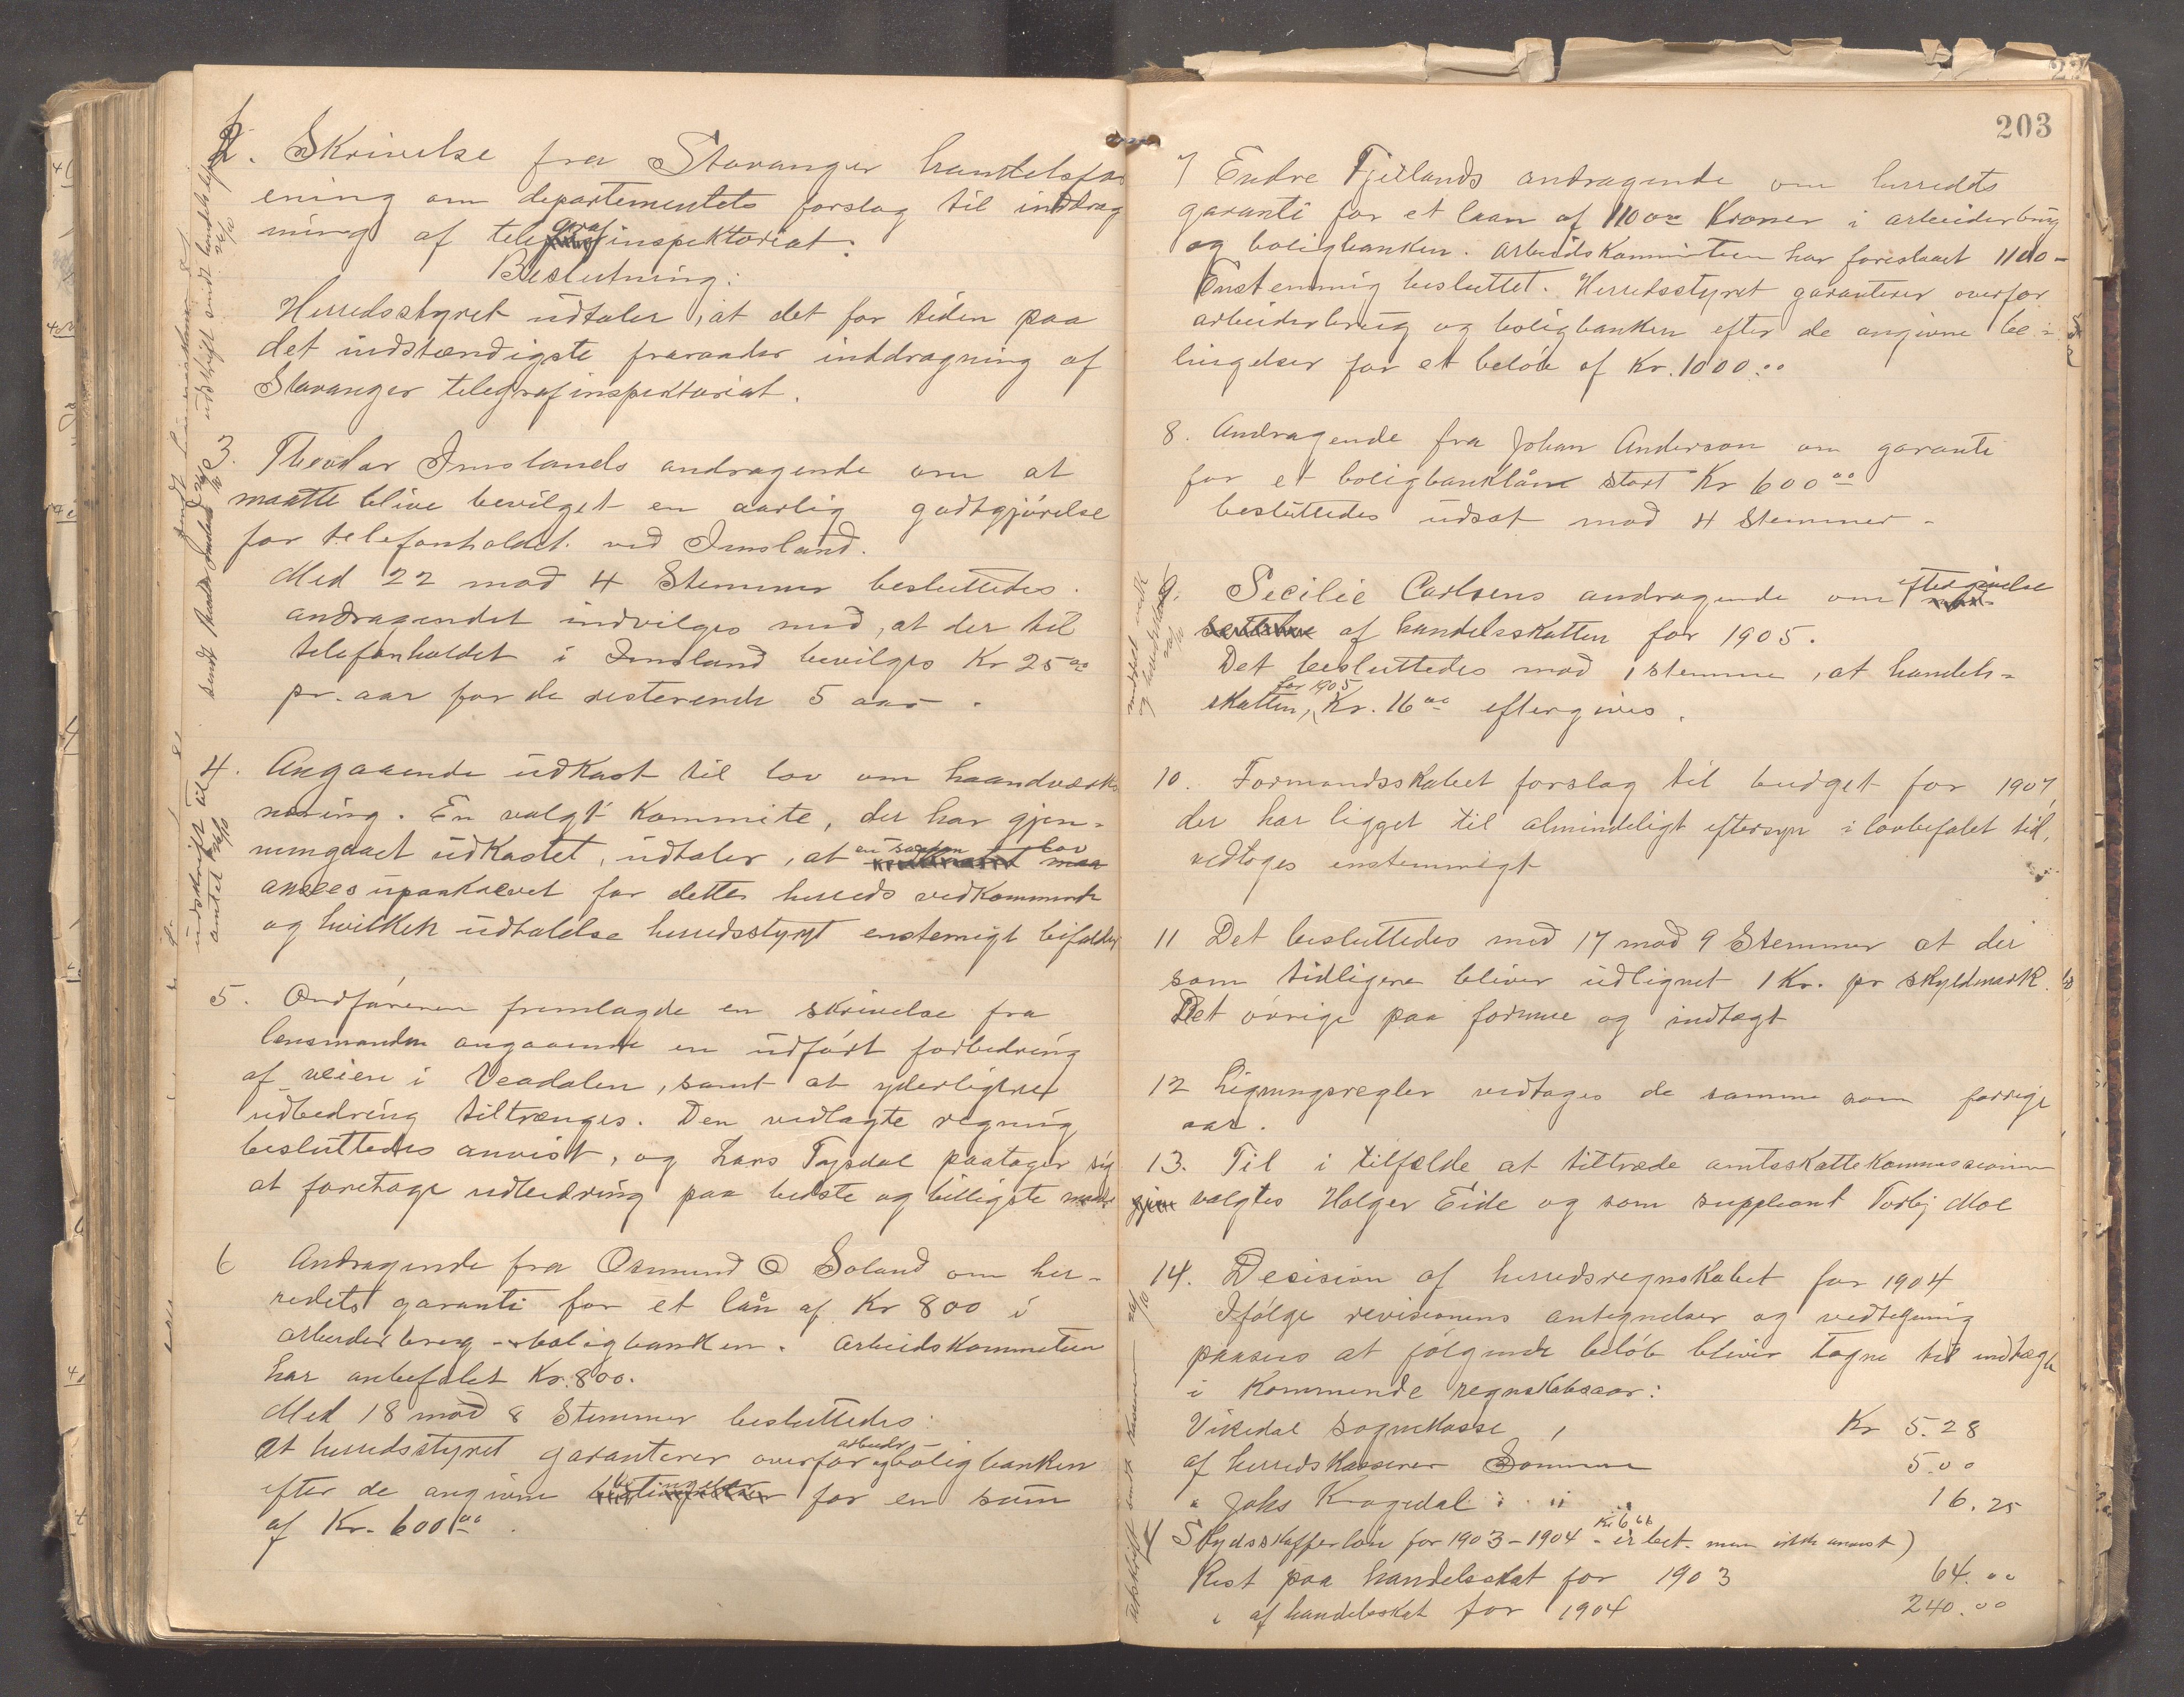 2. Skrivelse fra Stavanger handelsfor
ening om departementets forslag til inddrag
ning af telegrafinspektoriat.
Beslutning:
Herredsstyret udtaler, at det for tiden paa
det indstændigste fraraader inddragning af
Stavanger telegrafinspektoriat.
3. Theodor Imslands andragende om at
maatte blive bevilget en aarlig godtgjörelse
for telefonholdet ved Imsland.
Med 22 mod 4 Stemmer besluttedes
andragendet indvilges med, at der til
telefonholdet i Imsland bevilges Kr 25 00
pr. aar for de resterende 5 aar.
4. Angaaende udkast til lov om haandværks
næring. En valgt Kommite, der har gjen-
nemgaaet udkastet, udtaler, at en saadan lov
ansees upaakrævet for dette herreds vedkommende
og hvilken udtalelse herredsstyret enstemigt bifalder
5. Ordföreren fremlagde en skrivelse fra
lensmanden angaaende en udfört forbedring
af veien i Veadalen, samt at yderligere
udbedring tiltrænges. Den vedlagte regning
besluttedes anvist, og Lars Tysdal paatager sig
at foretage udbedring paa bedste og billigste maade
6 Andragende fra Osmund O Soland om her-
redets garanti for et lån af Kr 800 i
arbeiderbrug - boligbanken. Arbeidskommiteen
har anbefalet Kr. 800.
Med 18 mod 8 Stemmer besluttedes:
At herredsstyret garanterer overfor arbeider- og boligbanken
efter de angivne betingelser for en sum
af Kr. 600 00.
203
7 Endre Fjellands andragende om herredets
garanti for et laan af 1100 00 Kroner i arbeiderbrug
og boligbanken. Arbeidskommiteen har foreslaaet 1100-
Enstemmig besluttet. Herredsstyret garanterer overfor
arbeiderbrug og boligbanken efter de angivne be-
tingelser for et belöb af Kr. 1000.00
8. Andragende fra Johan Anderson om garanti
for et boligbanklån stort Kr 600 00
besluttedes udsat mod 4 Stemmer-
9. Secilie Carlsens andragende om eftergivelse
af handelsskatten for 1905.
Det besluttedes mod 1 stemme, at handels-
skatten, for 1905 Kr. 16 00 eftergives.
10. Formandsskabet forslag til budget for 1907,
der har ligget til almindeligt eftersyn i lovbefalet tid,
vedtoges enstemmigt
11 Det besluttedes med 17 mod 9 Stemmer at der
som tidligere bliver udlignet 1 Kr. pr skyldmark.
Det övrige paa formue og indtægt
12 Ligningsregler vedtages de samme som forrige
aar.
13. Til i tilfælde at tiltræde amtsskattekommissionen
valgtes Holger Eide og som suppleant Torbj Moe
14. Decision af herredsregnskabet for 1904
Ifölge revisionens antegnelser og vedtegning
paasees at fölgende belöb bliver tagne til indtægt
i Kommende regnskabsaar:
Vikedal sognekasse, Kr 5.28
af herredskasserer Sömme 5.00
" Johs Kragedal : " " 16.25
Skydsskafferlön for 1903-1904 - Kr 6 66 er bet. men ikke anvist)
Rest paa handelsskat for 1903 64.00
" af handelsskat for 1904 240.00